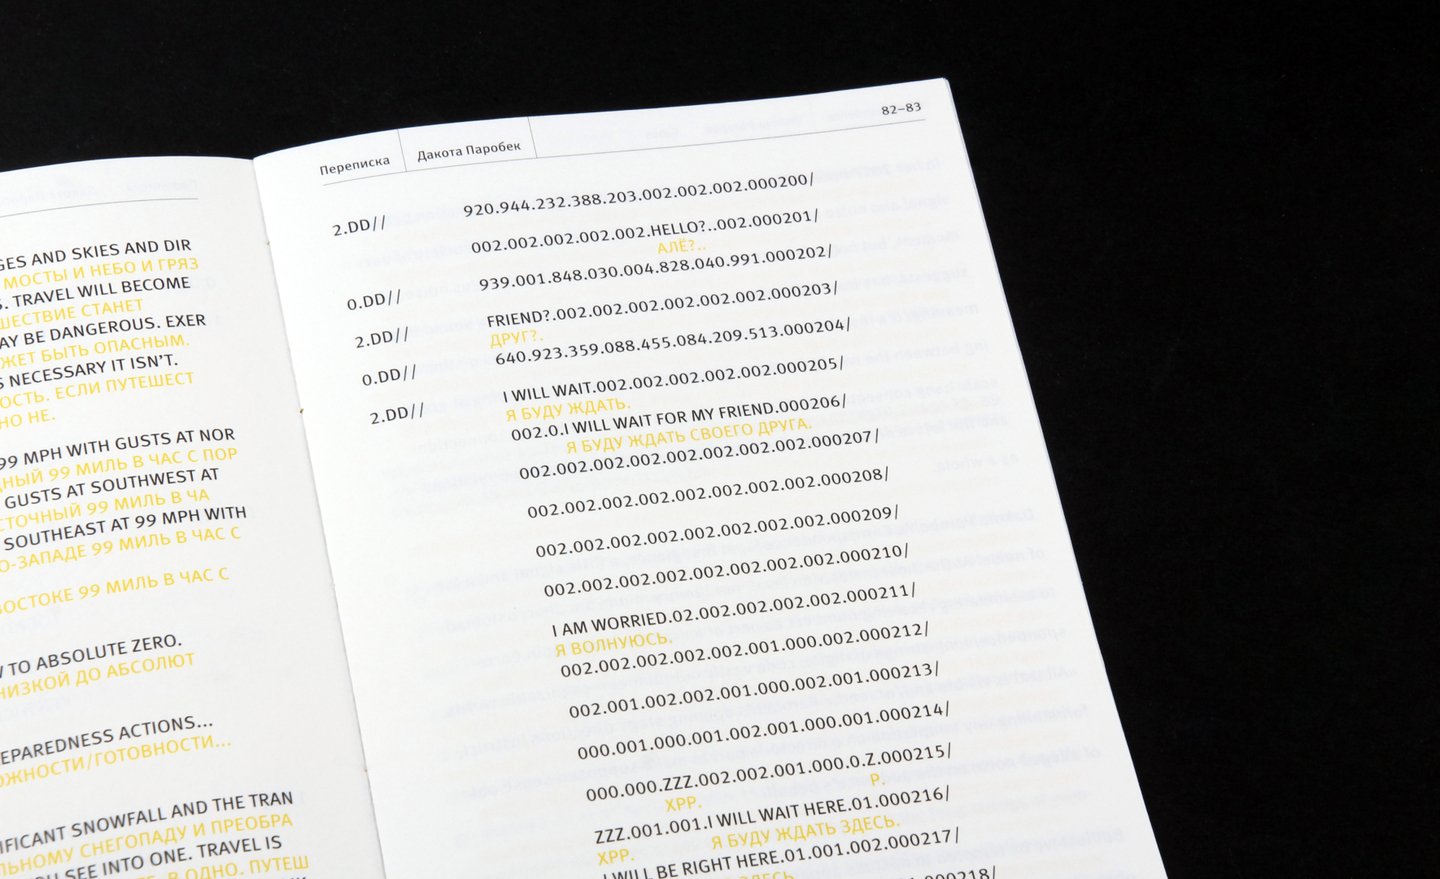 GES AND SKIES AND DIR
МОСТЫ И НЕБО И ГРЯЗ
S. TRAVEL WILL BECOME
ШЕСТВИЕ СТАНЕТ
AY BE DANGEROUS. EXER
ЖЕТ БЫТЬ ОПАСНЫМ.
S NECESSARY IT ISN'T.
ОСТЬ. ЕСЛИ ПУТЕШЕСТ
НО НЕ.
99 MPH WITH GUSTS AT NOR
ДНЫЙ 99 МИЛЬ В ЧАС С ПОР
GUSTS AT SOUTHWEST AT
СТОЧНЫЙ 99 МИЛЬ В ЧА
SOUTHEAST AT 99 MPH WITH
О-ЗАПАДЕ 99 МИЛЬ В ЧАС С
ВОСТОКЕ 99 МИЛЬ В ЧАС С
TO ABSOLUTE ZERO.
НИЗКОЙ ДО АБСОЛЮТ
EPAREDNESS ACTIONS...
ОЖНОСТИ/ГОТОВНОСТИ...
IFICANT SNOWFALL AND THE TRAN
ЛЬНОМУ СНЕГОПАДУ И ПРЕОБРА
OU SEE INTO ONE. TRAVEL IS
В ОДНО. ПУТЕШ
Переписка Дакота Паробек 82–83
2.DD// 920.944.232.388.203.002.002.002.000200/
002.002.002.002.002.HELLO?..002.000201/
АЛЁ?..
0.DD// 939.001.848.030.004.828.040.991.000202/
2.DD// FRIEND?.002.002.002.002.002.002.000203/
ДРУГ?.
0.DD// 640.923.359.088.455.084.209.513.000204/
2.DD// I WILL WAIT.002.002.002.002.002.000205/
Я БУДУ ЖДАТЬ.
002.0.I WILL WAIT FOR MY FRIEND.000206/
Я БУДУ ЖДАТЬ СВОЕГО ДРУГА.
002.002.002.002.002.002.002.002.000207/
002.002.002.002.002.002.002.002.000208/
002.002.002.002.002.002.002.002.000209/
002.002.002.002.002.002.002.002.000210/
I AM WORRIED.02.002.002.002.002.000211/
Я ВОЛНУЮСЬ.
002.002.002.002.002.001.000.002.000212/
002.001.002.002.001.000.002.001.000213/
000.001.000.001.002.001.000.001.000214/
000.000.ZZZ.002.002.001.000.0.Z.000215/
ХРР. Р.
ZZZ.001.001.I WILL WAIT HERE.01.000216/
ХРР. Я БУДУ ЖДАТЬ ЗДЕСЬ.
I WILL BE RIGHT HERE.01.001.002.000217/
ЗДЕСЬ
000218/